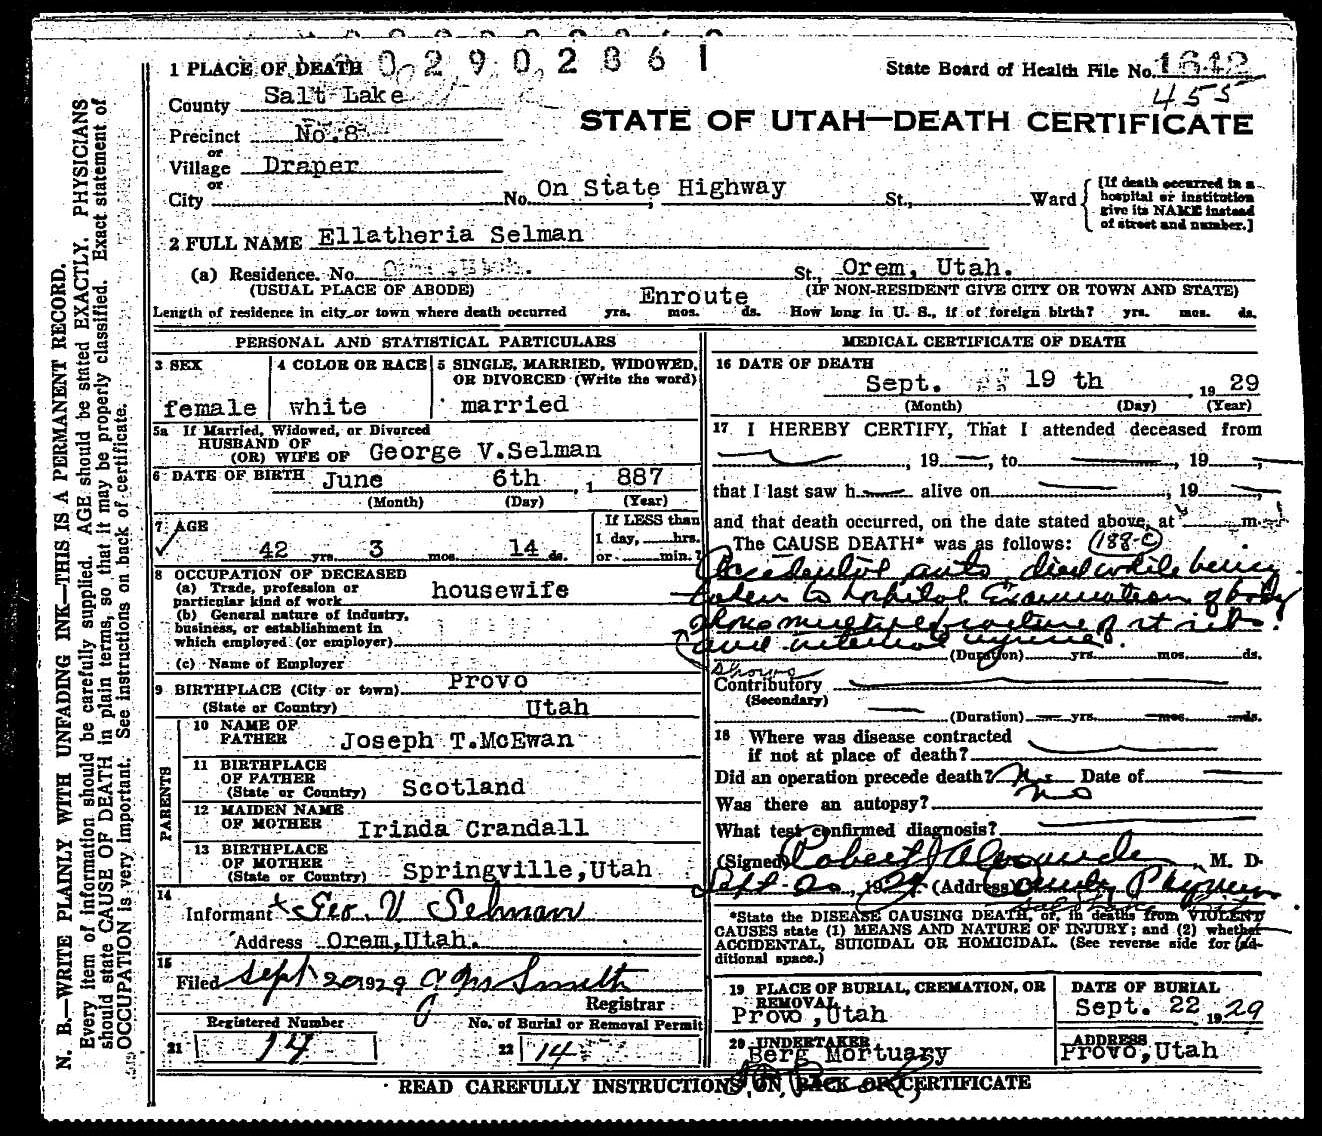 0 2 9 0 2 8 6 1
1 PLACE OF DEATH
State Board of Health File No. 1642
455
County Salt Lake
STATE OF UTAH—DEATH CERTIFICATE
Precinct No. 8
or
Village Draper
or
City No. On State Highway St., Ward
[If death occurred in a hospital or institution give its NAME instead of street and number.]
2 FULL NAME Ellatheria Selman
(a) Residence. No. St., Orem, Utah.
(USUAL PLACE OF ABODE) (IF NON-RESIDENT GIVE CITY OR TOWN AND STATE)
Enroute
Length of residence in city or town where death occurred yrs. mos. ds. How long in U. S., if of foreign birth? yrs. mos. ds.
PERSONAL AND STATISTICAL PARTICULARS
3 SEX 4 COLOR OR RACE 5 SINGLE, MARRIED, WIDOWED, OR DIVORCED (Write the word)
female white married
5a If Married, Widowed, or Divorced
HUSBAND OF
(OR) WIFE OF George V.Selman
6 DATE OF BIRTH June 6th , 1 887
(Month) (Day) (Year)
7 AGE
If LESS than 1 day, hrs. or min.?
42 yrs. 3 mos. 14 ds.
8 OCCUPATION OF DECEASED
(a) Trade, profession or particular kind of work housewife
(b) General nature of industry, business, or establishment in which employed (or employer)
(c) Name of Employer
9 BIRTHPLACE (City or town) Provo
(State or Country) Utah
PARENTS
10 NAME OF FATHER Joseph T.McEwan
11 BIRTHPLACE OF FATHER (State or Country) Scotland
12 MAIDEN NAME OF MOTHER Irinda Crandall
13 BIRTHPLACE OF MOTHER (State or Country) Springville,Utah
14
Informant x Geo. V Selman
Address Orem,Utah.
15
Filed Sept 20 1929 Smith
Registrar
Registered Number No. of Burial or Removal Permit
21 14 22 14
MEDICAL CERTIFICATE OF DEATH
16 DATE OF DEATH
Sept. 19 th , 19 29
(Month) (Day) (Year)
17 I HEREBY CERTIFY, That I attended deceased from
, 19 , to , 19 ,
that I last saw h alive on , 19 ,
and that death occurred, on the date stated above, at m.
The CAUSE DEATH* was as follows: (188-C)
Accidental auto died while being
taken to hospital Examination of body
shows multiple fracture of rt ribs.
and internal injuries.
(Duration) yrs. mos. ds.
shows
Contributory
(Secondary)
(Duration) yrs. mos. ds.
18 Where was disease contracted
if not at place of death?
Did an operation precede death? No Date of
Was there an autopsy? no
What test confirmed diagnosis?
(Signed) Robert J Alexander , M. D.
Sept 20 , 1929. (Address) County Physician
Salt Lake
*State the DISEASE CAUSING DEATH, or, in deaths from VIOLENT
CAUSES state (1) MEANS AND NATURE OF INJURY; and (2) whether
ACCIDENTAL, SUICIDAL OR HOMICIDAL. (See reverse side for additional space.)
19 PLACE OF BURIAL, CREMATION, OR REMOVAL DATE OF BURIAL
Provo ,Utah Sept. 22 19 29
20 UNDERTAKER ADDRESS
Berg Mortuary Provo,Utah
READ CAREFULLY INSTRUCTIONS ON BACK OF CERTIFICATE
N. B.—WRITE PLAINLY WITH UNFADING INK—THIS IS A PERMANENT RECORD.
Every item of information should be carefully supplied. AGE should be stated EXACTLY. PHYSICIANS
should state CAUSE OF DEATH in plain terms, so that it may be properly classified. Exact statement of
OCCUPATION is very important. See instructions on back of certificate.